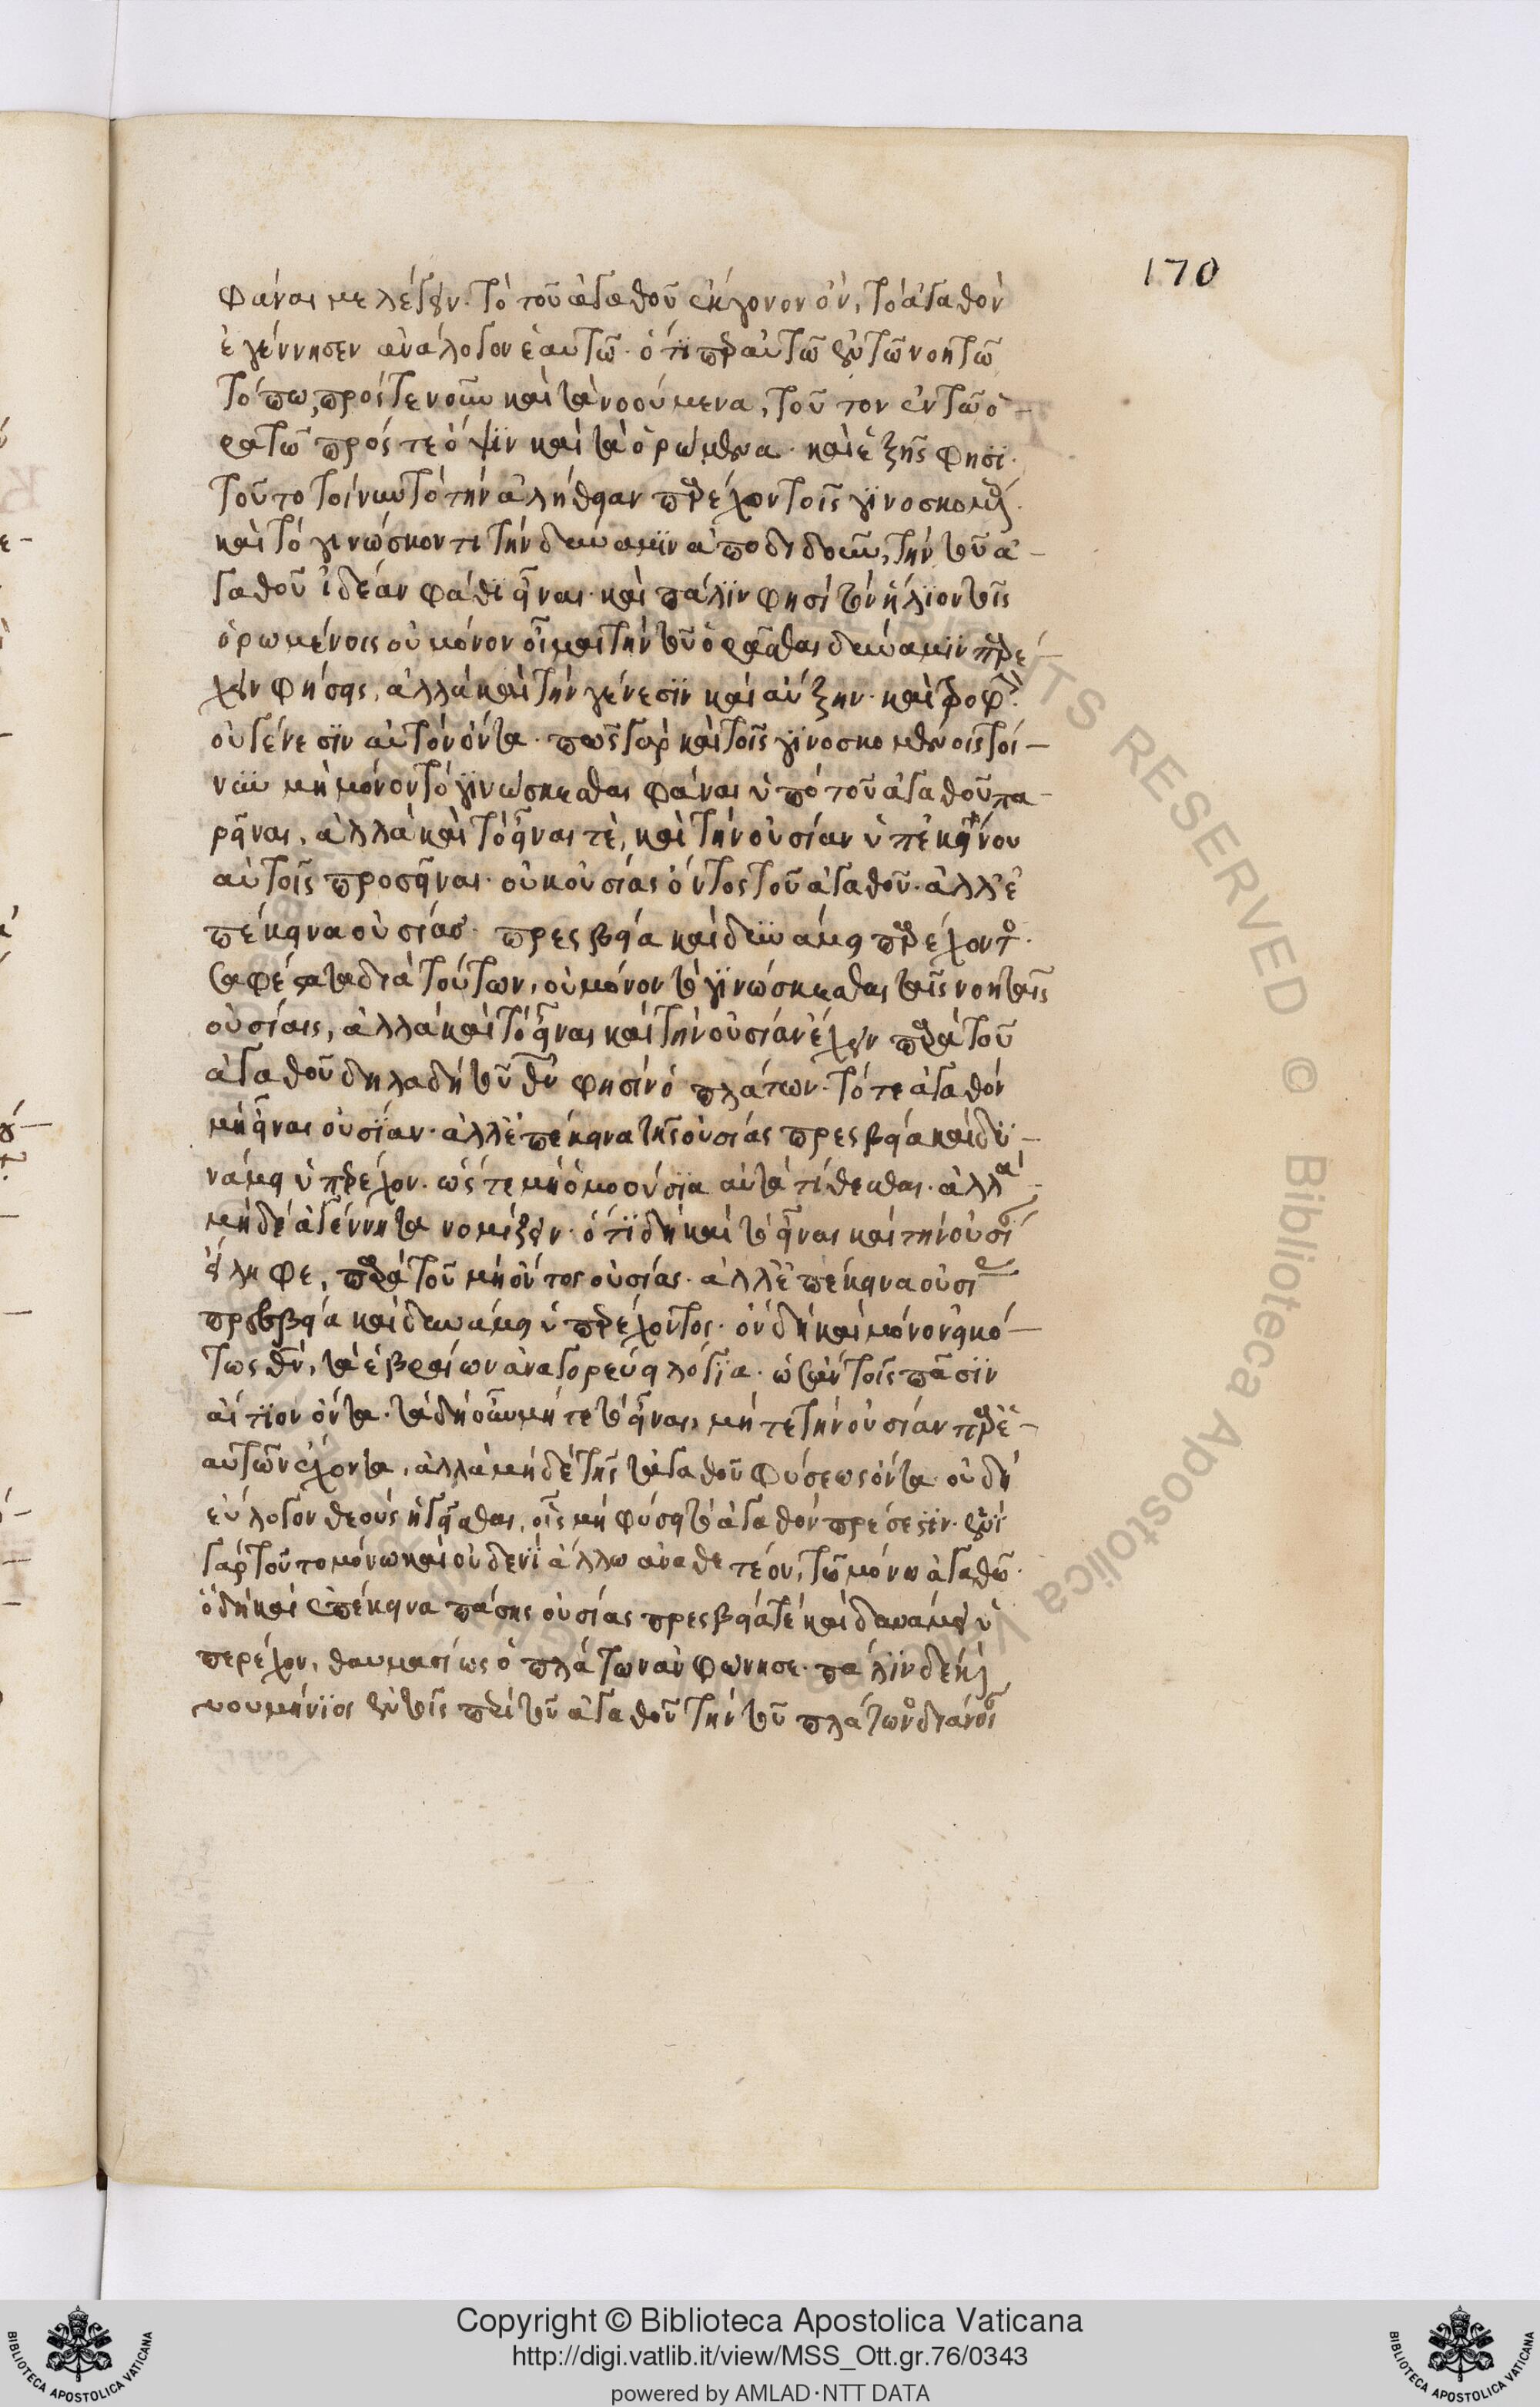 170
φάναι με λέγειν. τὸ τοῦ ἀγαθοῦ ἔκγονον ὃν, τὸ ἀγαθὸν
ἐγέννησεν ἀνάλογον ἑαυτῶ. ὅτιπερ αὐτῶ ἐν τῶ νοητῶ
τόπω, πρός τε νοῦν καὶ τὰ νοούμενα, τοῦτον ἐν τῶ ὁ-
ρατῶ πρός τε ὄψϊν καὶ τὰ ὁρώμενα. καὶ ἑξῆς φησϊ.
τοῦτο τοίνυν τὸ τὴν ἀλήθειαν παρέχον τοῖς γϊνοσκομένοις.
καὶ τὸ γινώσκοντι τὴν δύναμϊν ἀποδιδοῦν, τὴν τοῦ ἀ-
γαθοῦ ἰδέαν φάθϊ εἶναι. καὶ πάλϊν φησὶ τὸν ἥλϊον τοῖς
ὁρωμένοις οὐ μόνον οἶμαι τὴν τοῦ ὁρᾶσθαι δύναμϊν παρέ-
χειν φήσεις, ἀλλὰ καὶ τὴν γένεσϊν καὶ αὔξην. καὶ τροφὴν
οὐ γένεσϊν αὐτὸν ὄντα. πῶς γὰρ καὶ τοῖς γϊνοσκομένοις τοί-
νυν μὴ μόνον τὸ γϊνώσκεσθαι φάναι ὑπὸ τοῦ ἀγαθοῦ πα-
ρεῖναι, ἀλλὰ καὶ τὸ εἶναι τὲ, καὶ τὴν οὐσίαν ὑπ' ἐκείνου
αὐτοῖς προσεῖναι. οὐκ οὐσίας ὄντος τοῦ ἀγαθοῦ. ἀλλ' ἐ
πέκεινα οὐσίας. πρεσβεία καὶ δυνάμει περέχοντος.
σαφέστατα διὰ τούτων, οὐ μόνον τὸ γϊνώσκεσθαι ταῖς νοηταῖς
οὐσίαις, ἀλλὰ καὶ τὸ εἶναι καὶ τὴν οὐσίαν ἔχειν παρὰ τοῦ
ἀγαθοῦ δηλαδὴ τοῦ θεοῦ φησὶν ὁ πλάτων. τό τε ἀγαθὸν
μὴ εἶναι οὐσίαν. ἀλλ' ἐπέκεινα τῆς οὐσίας πρεσβεία καὶ δϋ-
νάμει ὑπερέχον. ὥστε μὴ ὁμοούσϊα αὐτὰ τίθεσθαι. ἀλλὰ
μηδὲ ἀγέννητα νομίζειν. ὅτϊ δὴ καὶ τὸ εἶναι καὶ τὴν οὐσίαν
εἴληφε, παρὰ τοῦ μὴ ὄντος οὐσίας. ἀλλ' ἐπέκεινα οὐσίας
πρεσβεία καὶ δυνάμει ὑπερέχοντος. ὃν δὴ καὶ μόνον εἰκό-
τως θεὸν, τὰ ἑβραίων ἀναγορεύει λόγϊα. ὡσὰν τοῖς πᾶσϊν
αἴτϊον ὄντα. τὰ δὴ οὖν μήτε τὸ εἶναι, μήτε τὴν οὐσίαν παρ' ἑ-
αυτῶν ἔχοντα, ἀλλὰ μηδὲ τῆς τἀγαθοῦ φύσεως ὄντα. οὐ δὴ
εὔλογον θεοὺς ἡγεῖσθαι, οἷς μὴ φύσει τὸ ἀγαθὸν πρόσεστϊν. ἑνὶ
γὰρ τοῦτο μόνω καὶ οὐδενὶ ἄλλω ἀναθετέον, τῶ μόνω ἀγαθῶ.
ὃ δὴ καὶ ἐπέκεινα πάσης οὐσίας πρεσβεία τὲ καὶ δυνάμει ὑ
περέχον, θαυμασίως ὁ πλάτων ἀνεφώνησε. πάλϊν δὲ καὶ
νουμήνϊος ἐν τοῖς περὶ τοῦ ἀγαθοῦ τὴν τοῦ πλάτωνος διάνοιαν
Copyright © Biblioteca Apostolica Vaticana
http://digi.vatlib.it/view/MSS_Ott.gr.76/0343
powered by AMLAD·NTT DATA